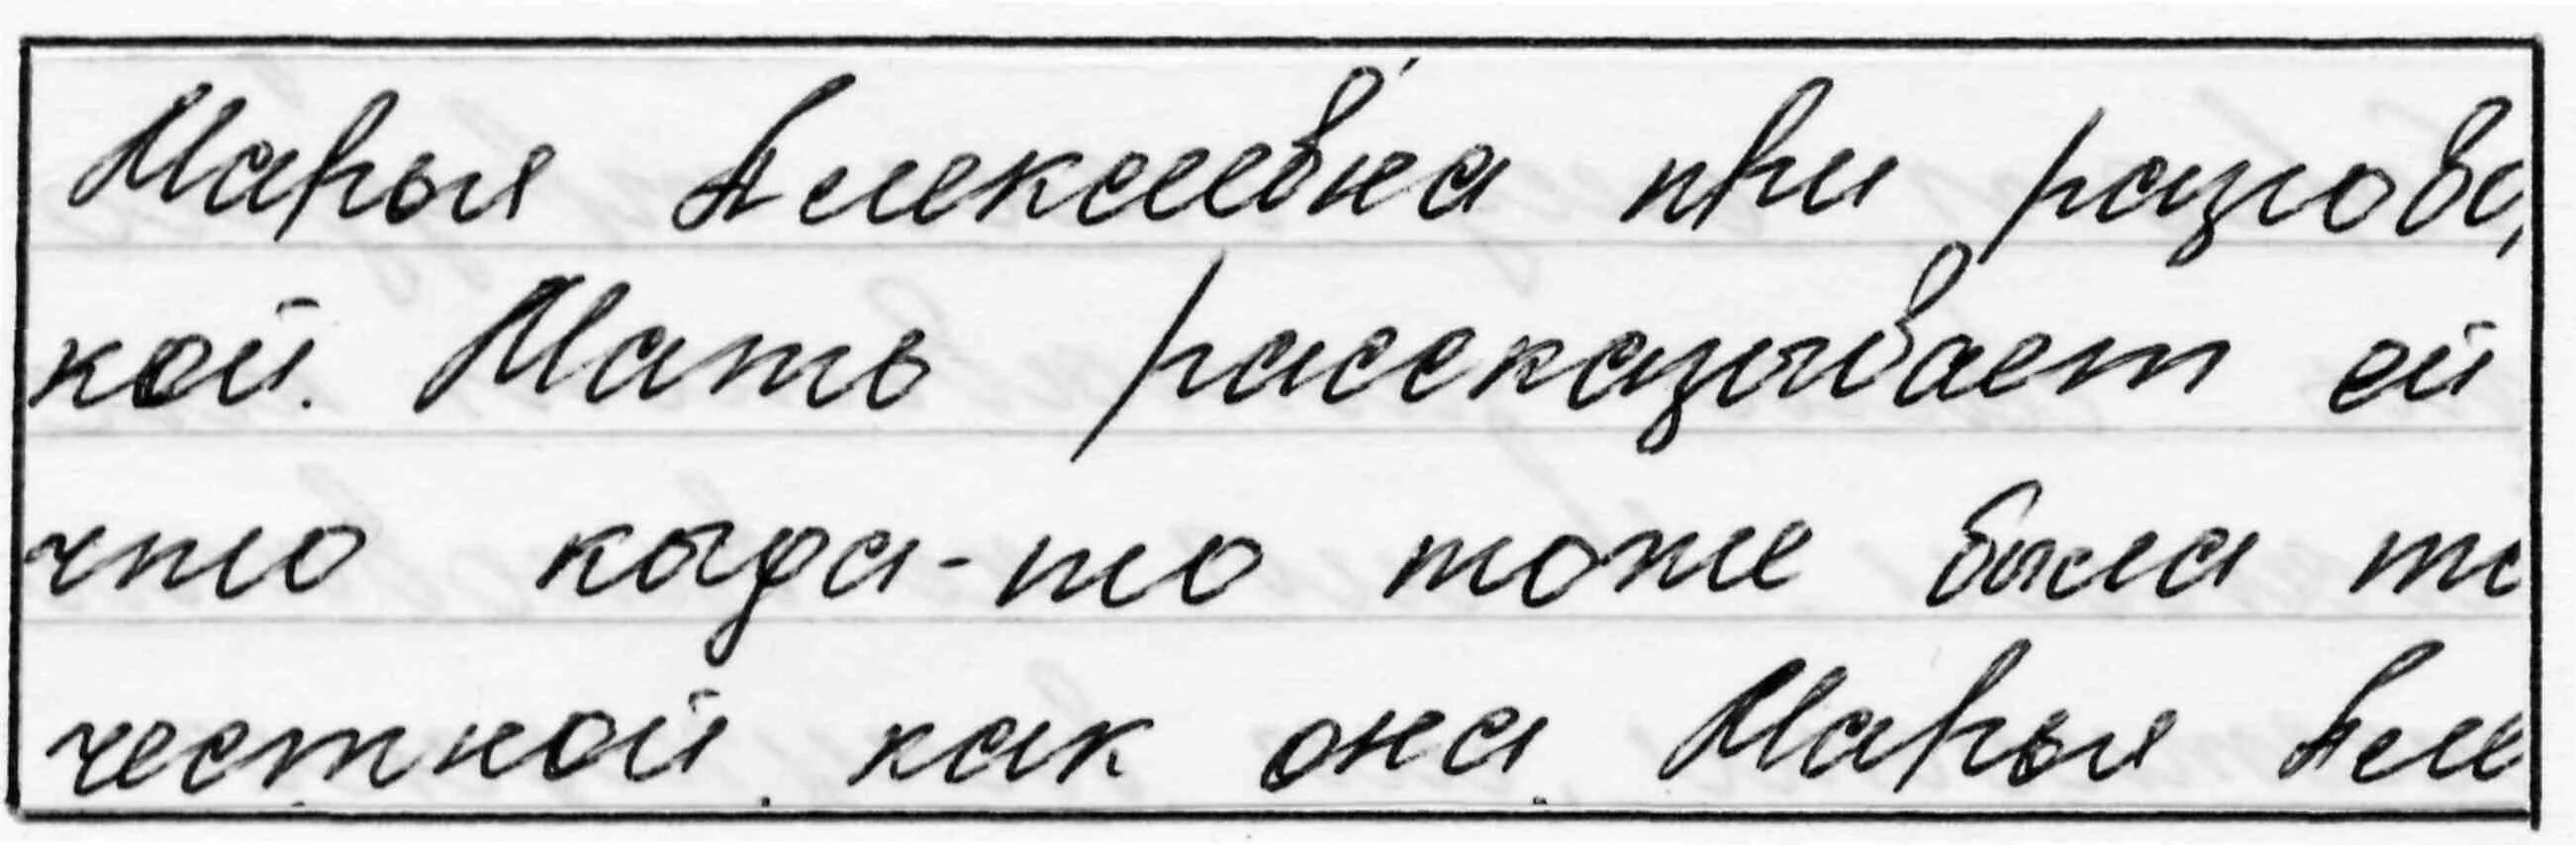 Марья Алексеевна при разгово
кой. Мать рассказывает ей
что когда-то тоже была та
честной, как она. Марья Але